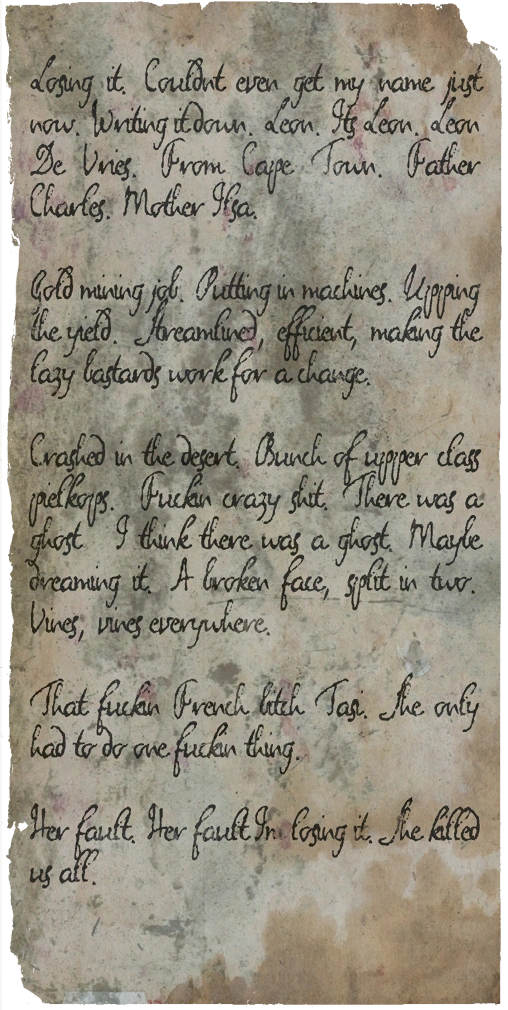 Losing it. Couldnt even get my name just
now. Writing it down. Leon. Its Leon. Leon
De Vries. From Cape Town. Father
Charles. Mother Ilsa.
Gold mining job. Putting in machines. Upping
the yield. Streamlined, efficient, making the
lazy bastards work for a change.
Crashed in the desert. Bunch of upper class
pielkops. Fuckin crazy shit. There was a
ghost. I think there was a ghost. Maybe
dreaming it. A broken face, split in two.
Vines, vines everywhere.
That fuckin French bitch Tasi. She only
had to do one fuckin thing.
Her fault. Her fault Im losing it. She killed
us all.